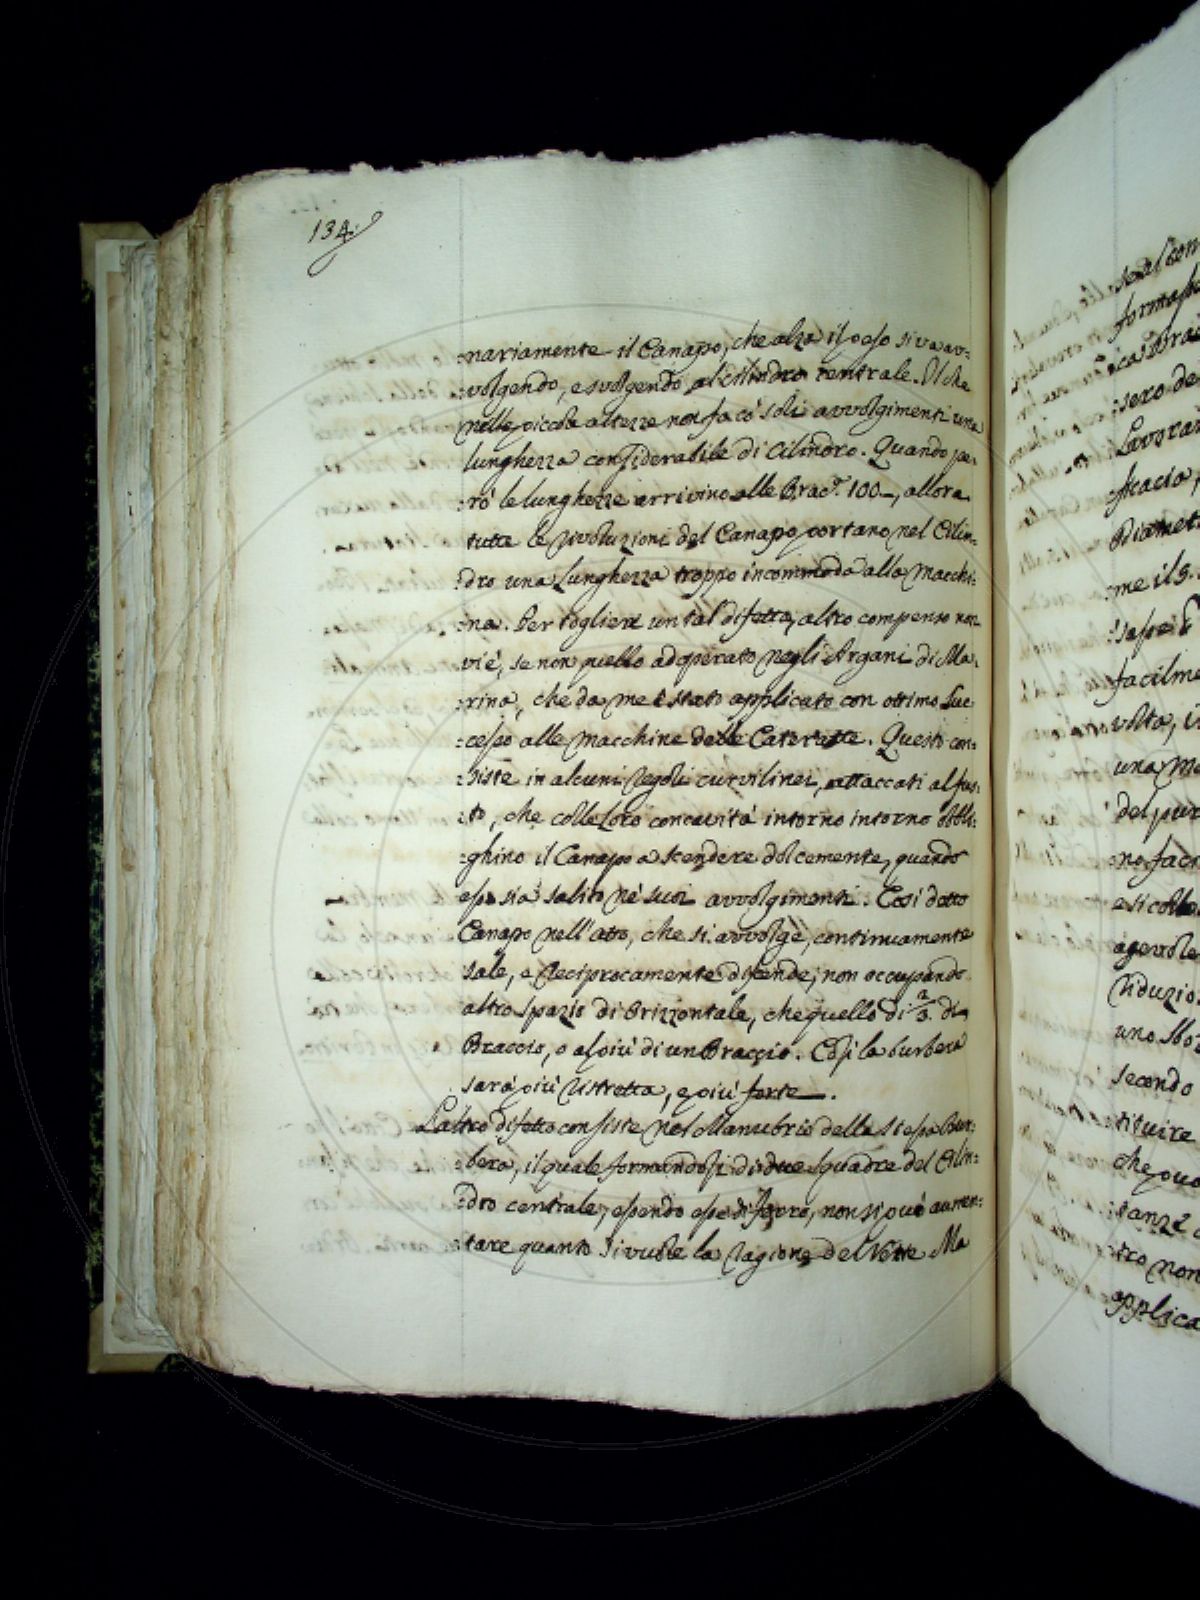 134.
:nariamente il Canapo, che alza il peso si va av:
:volgendo, e svolgendo al cilindro centrale. Il che
nelle piccole altezze non fa co' soli avvolgimenti una
lunghezza considerabile di Cilindro. Quando pe:
:rò le lunghezze arrivino alle Bracc.ª 100_, allora
tutte le rivoluzioni del Canapo portano nel Cilin:
:dro una lunghezza troppo incommoda alla Macchi:
:na. Per togliere un tal difetto, altro compenso non
vi è, se non quello adoperato negli Argani di Ma:
:rina, che da me è stato applicato con ottimo suc
:cesso alle Macchine delle Cateratte. Questi con:
:siste in alcuni Regoli curvilinei, attaccati al fus:
:to, che colle loro concavità intorno intorno obbli:
:ghino il Canapo a scendere dolcemente, quando
esso sia salito ne' suoi avvolgimenti. Così detto
Canapo nell'atto, che si avvolge, continuamente
sale, e reciprocamente discende, non occupando
altro spazio di Orizzontale, che quello di 2/3. di
Braccio, o al più di un Braccio. Così la burbera
sarà più ristretta, e più forte_.
L'altro difetto consiste nel Manubrio della stessa Bur:
:bera, il quale formandosi di due squadre del Cilin:
:dro centrale, essendo esse di ferro, non si può aumen:
:tare quanto si vuole la ragione del Vette Ma
forma
sero de
Lavora
ficacia,
Diamet
:me il 9.
facilme
volta, i
una Ma
del pur
e si colla
agevole
riduzio
uno sbo
secondo
tituire
che può
:tro non
applica